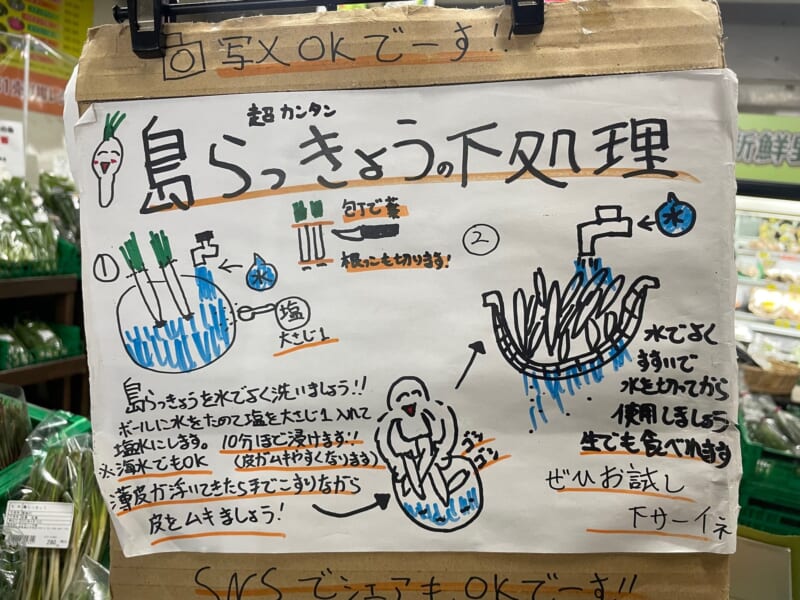 写メOKでーす!!
超カンタン
島らっきょうの下処理
①
水
塩
大さじ1
包丁で葉
根っこも切ります!
②
水
島らっきょうを水でよく洗いましょう!!
ボールに水をためて塩を大さじ1入れて
塩水にします。10分ほど浸けます!!
※海水でもOK (皮がムキやすくなります)
薄皮が浮いてきたら手でこすりながら
皮をムキましょう!
ゴシ
ゴシ
水でよく
すすいで
水を切ってから
使用しましょう
生でも食べれます
ぜひお試し
下サーイネ
SNSでシェアもOKでーす!!
新鮮